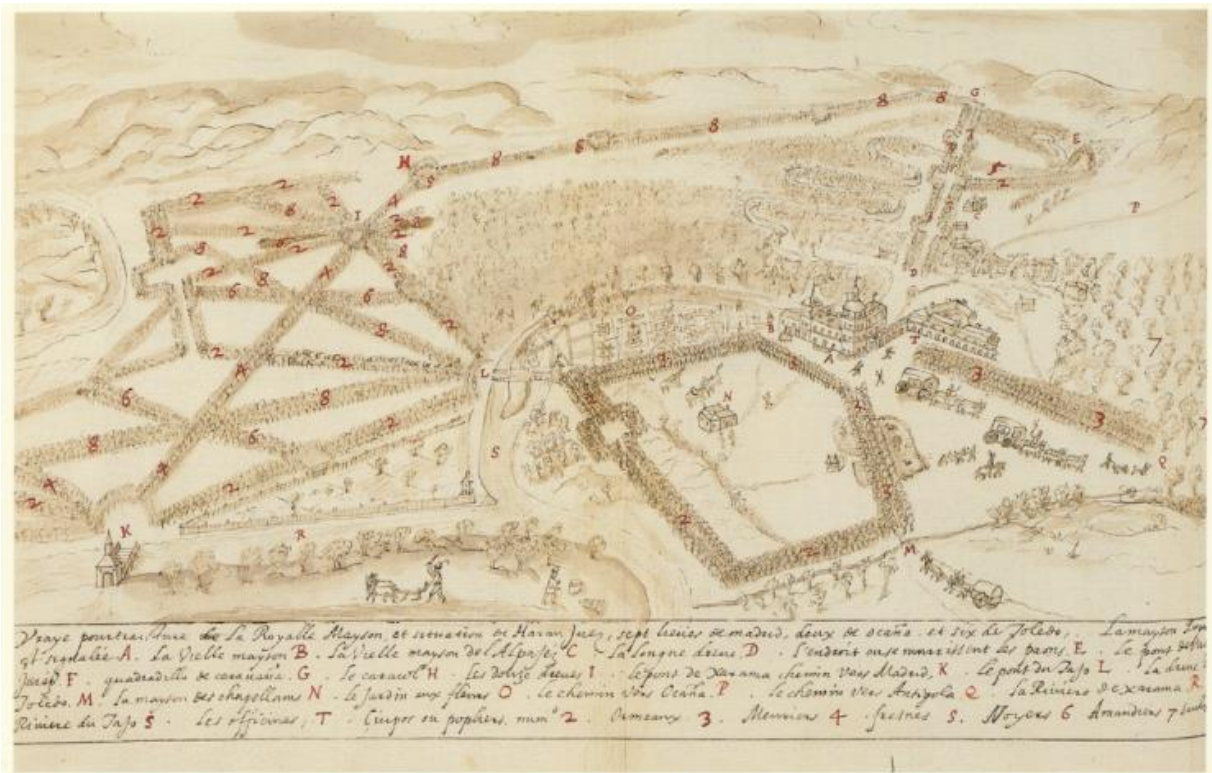 Vraye pourtraicture de La Royalle Mayson, et situation de Haran Juez, sept lieues de madrid, deux de ocaña. et six de Toledo, . Lamayson
est signalée A. La Vielle mayson B. La Vielle mayson de Alpajes, C La longue dreue, D . L'endroit ou se nourissent les paons. E . le pont de
F . quadradillo de G . le caracol H . les douze dreues I . le pont de Xarama chemin vers Madrid, K . le pont du Tajo L . la dreue
Toledo. M . la mayson des chapellains N . le Jardin aux fleurs O . le chemin vers Ocaña. P . le chemin vers Antigola Q . la Riviere de Xarama. R
Riviere du Tajo S . Les officines, T . ou num° 2 . Ormeaux 3 . Meuriers 4 . fresnes 5 . Noyers 6 Amandiers 7